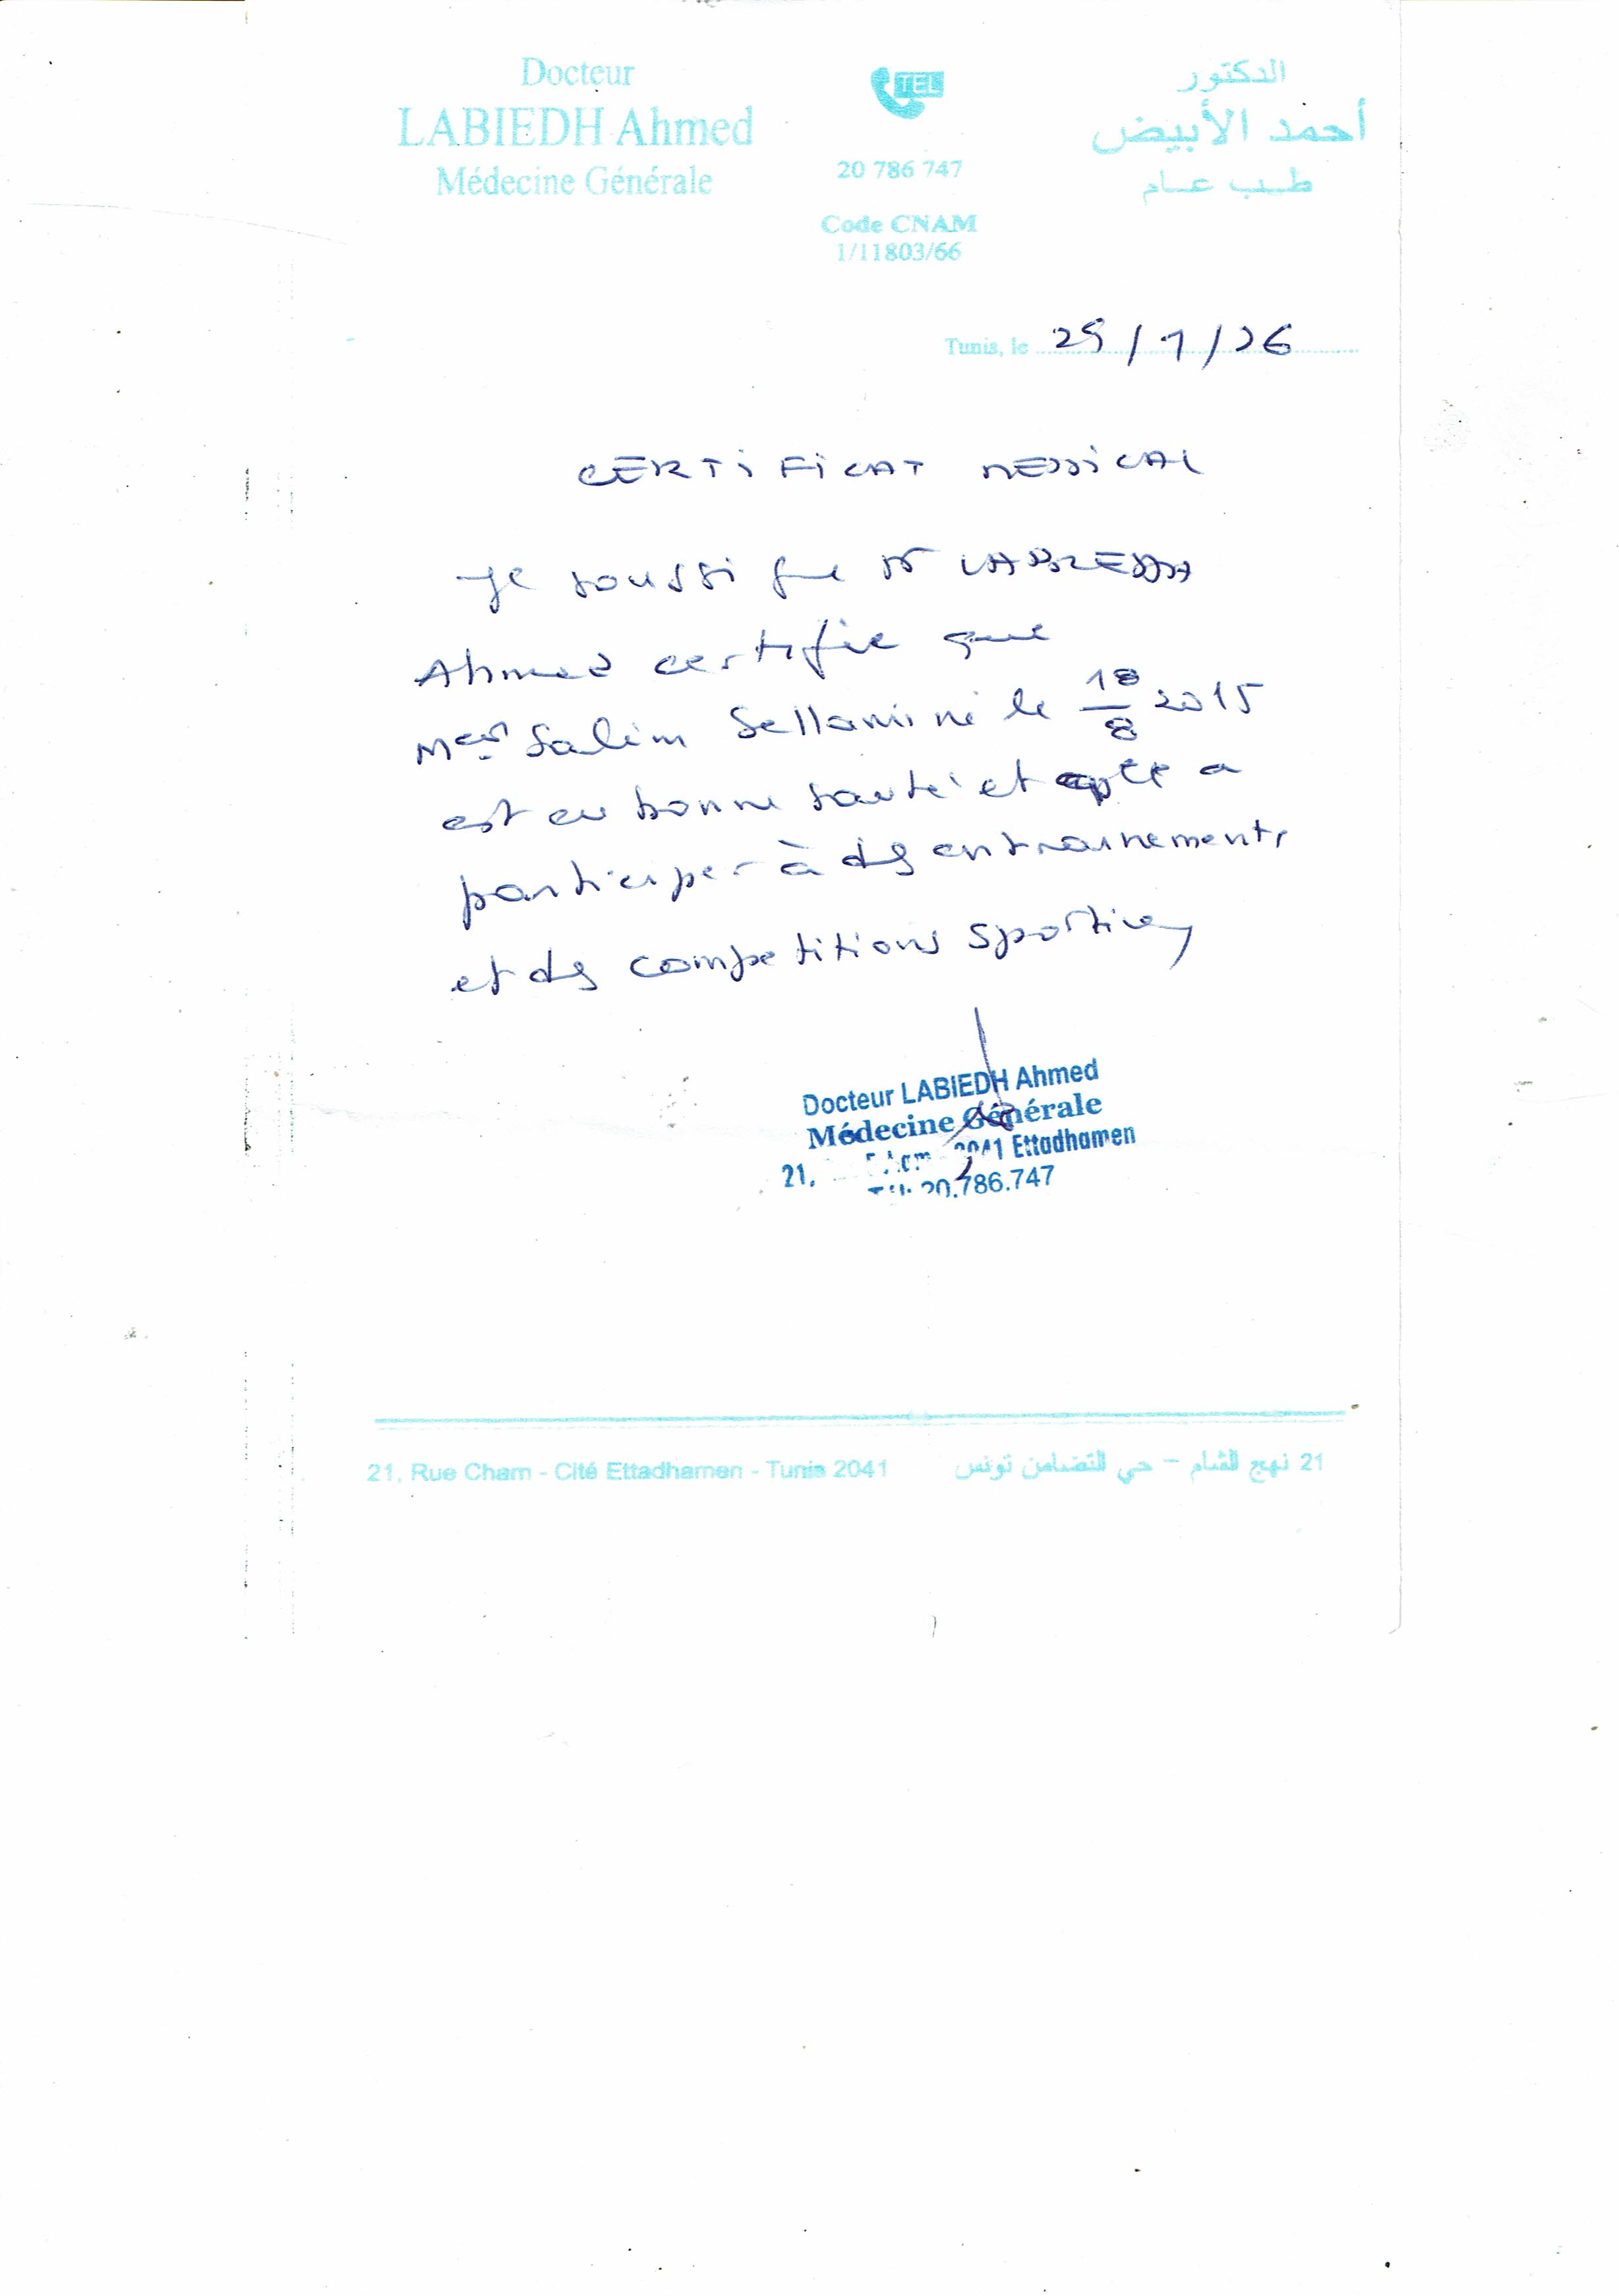 Docteur
LABIEDH Ahmed
Médecine Générale
TEL
20 786 747
Code CNAM
1/11803/66
الدكتور
أحمد الأبيض
طب عام
Tunis, le 29/1/26
CERTIFICAT MEDICAL
Je soussigne Dr LABIEDH
Ahmed certifie que
Salim Sellami né le 18/8 2015
est en bonne santé et apte a
participer à des entrainements
et des competitions sportives
Docteur LABIEDH Ahmed
Médecine Générale
21, 2041 Ettadhamen
20.786.747
21, Rue Cham - Cité Ettadhamen - Tunis 2041
21 نهج الشام - حي التضامن تونس